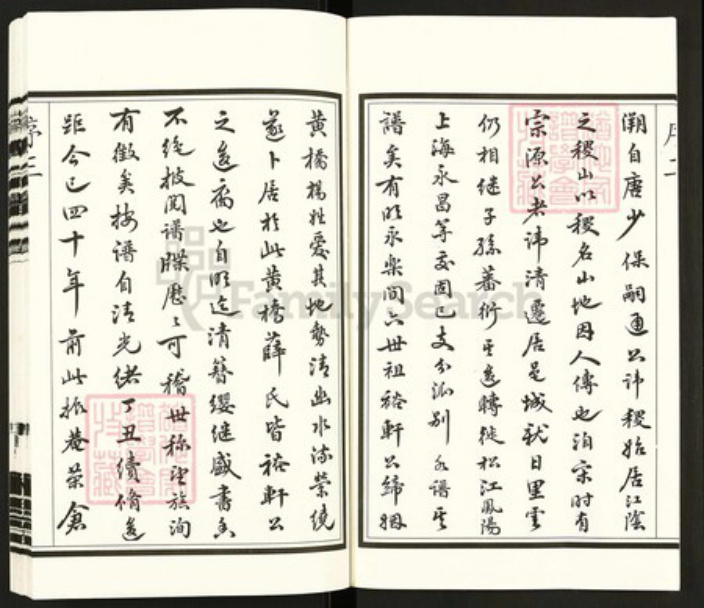 灝自唐少保嗣通公諱稷始居江陰
之稷山以稷名山地因人傳也洎宋時有
宗源公者諱清遷居是城狀日里雲
仍相繼子孫蕃衍其後轉徙松江鳳陽
上海永昌等處固已支分派別各譜其
譜矣有明永樂間六世祖裕軒公締姻
黃橋楊姓愛其地勢清幽水流縈繞
遂卜居於此黃橋薛氏皆裕軒公
之後裔也自明迄清簪纓繼盛書香
不絕披閱譜牒歷歷可稽世稱望族洵
有徵矣按譜自清光緒丁丑續脩後
距今已四十年前此振菴榮倉
序二
序三
FamilySearch